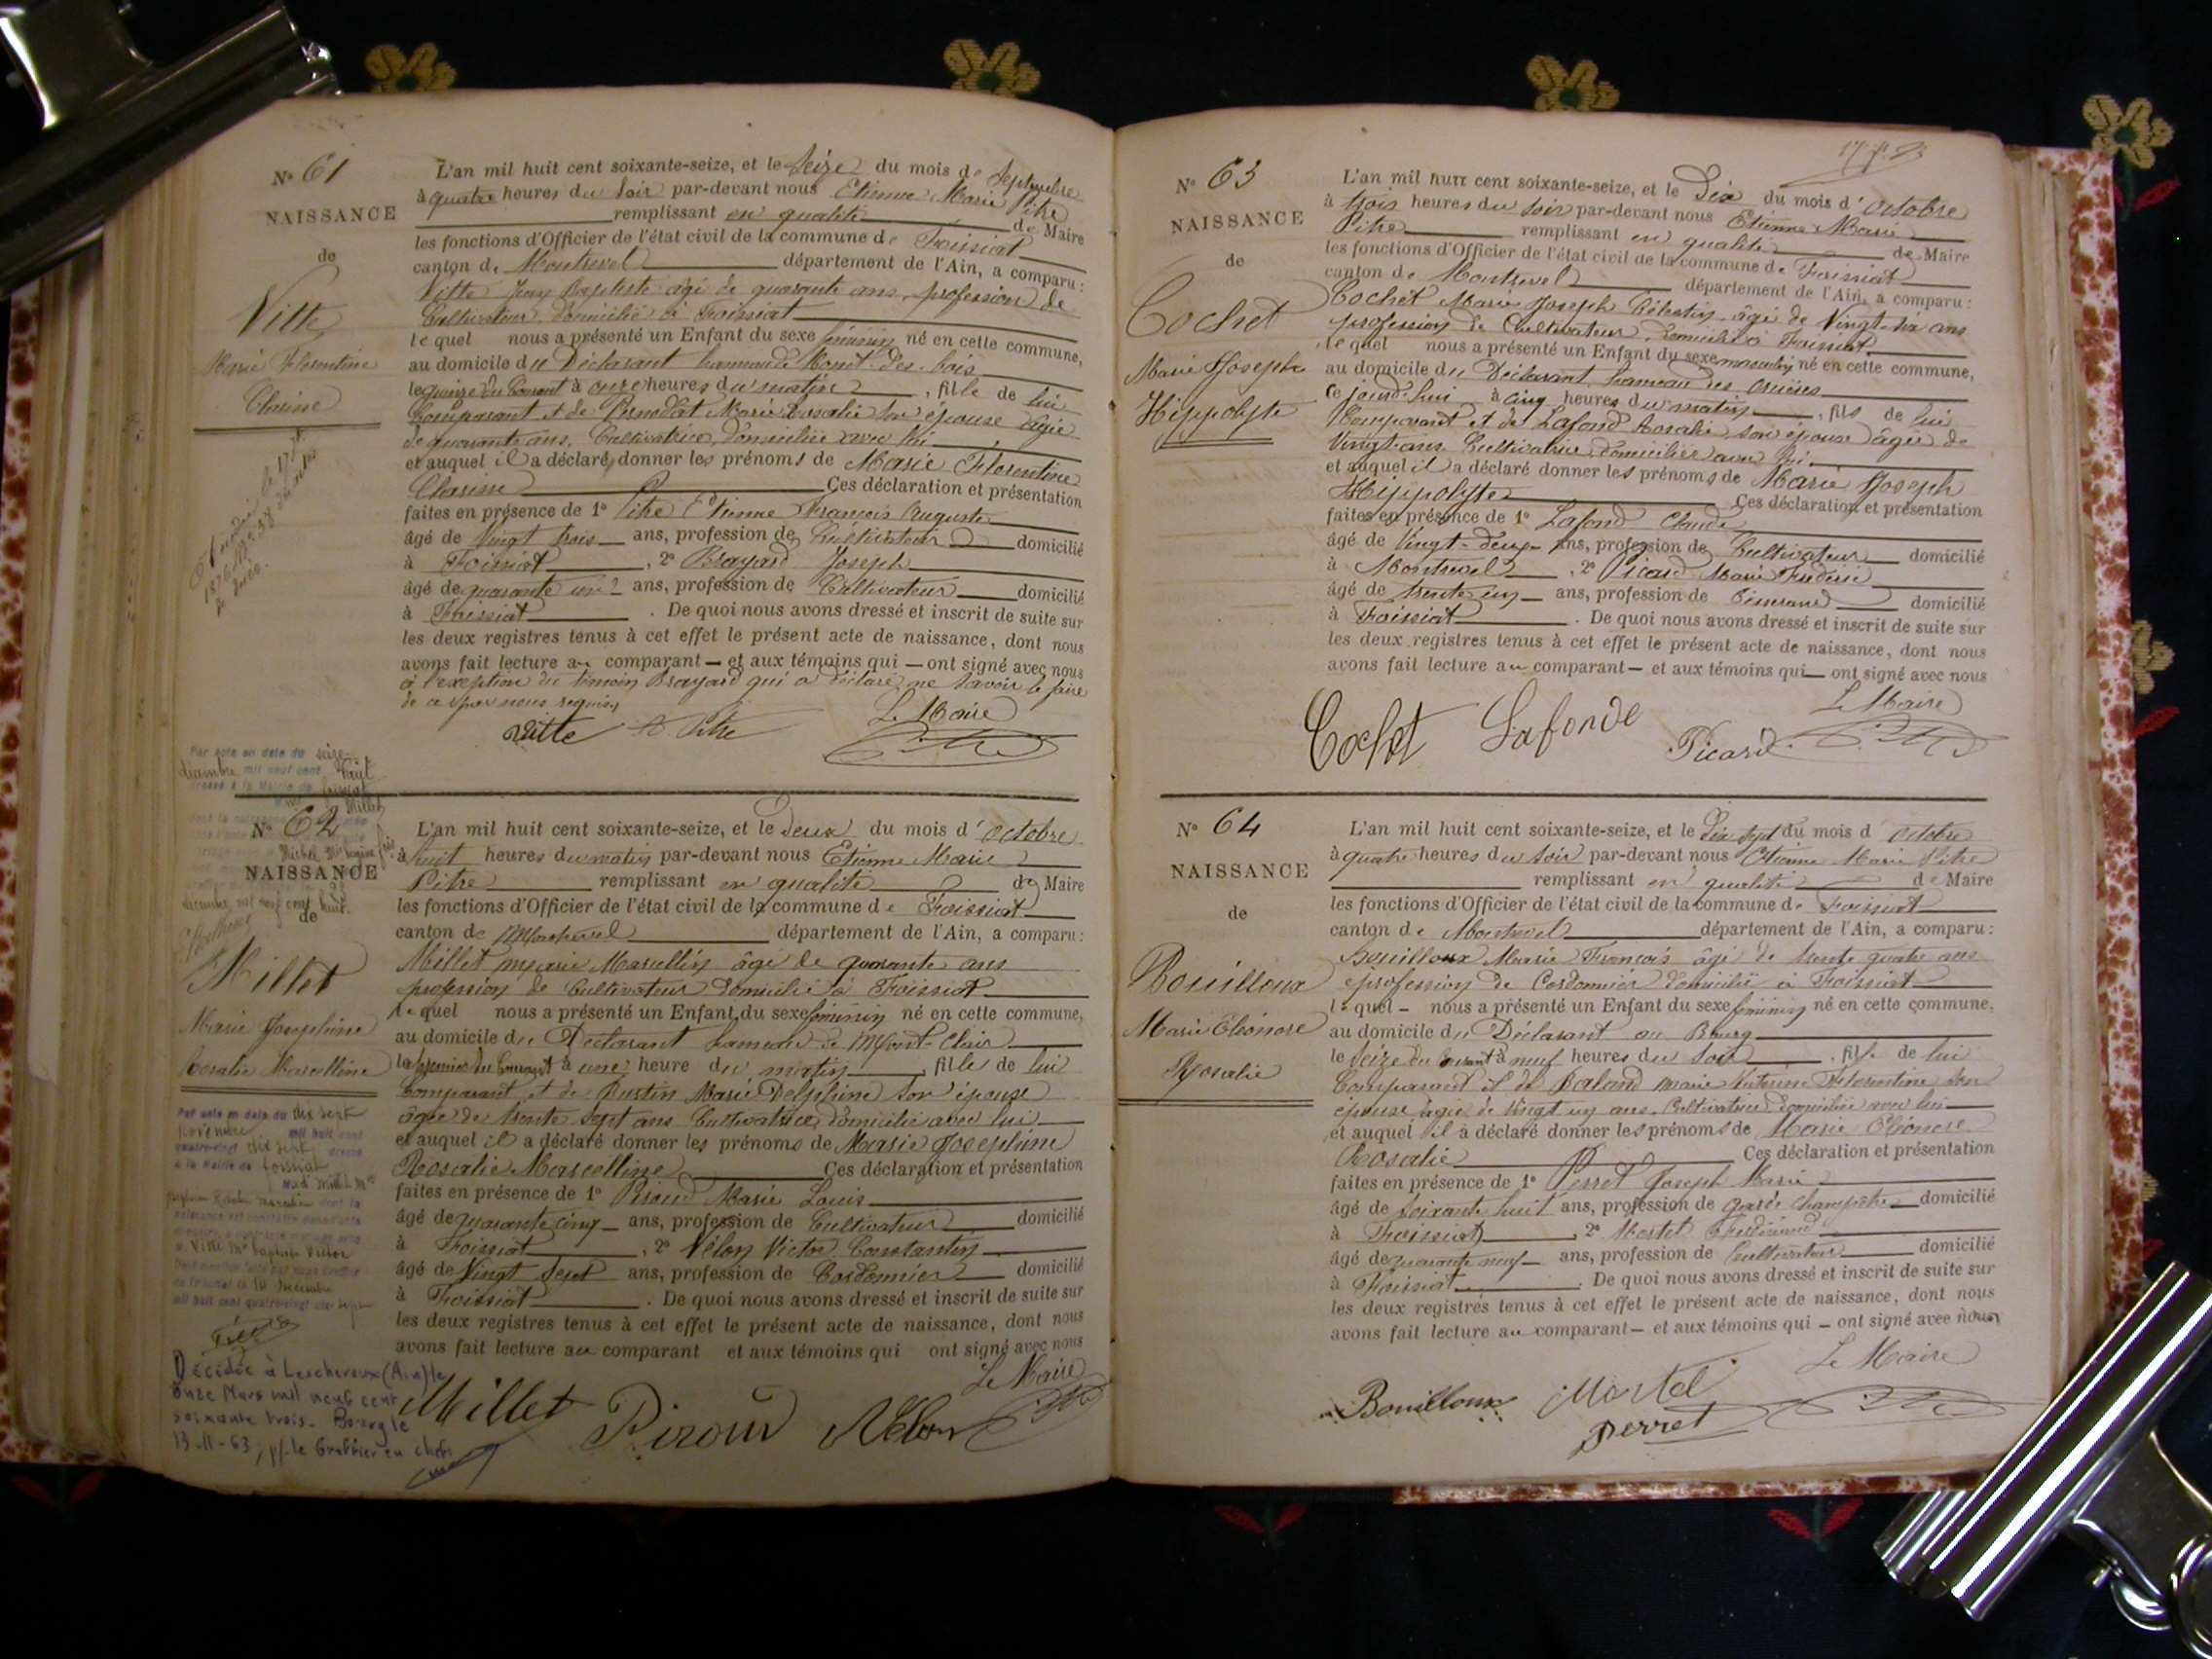 N° 61
NAISSANCE
de
Vitte
Marie Florentine
Clarisse
L'an mil huit cent soixante-seize, et le seize du mois de Septembre
à quatre heures du soir par-devant nous Etienne Marie Pitre
remplissant en qualité de Maire
les fonctions d'Officier de l'état civil de la commune de Foissiat
canton de Montrevel département de l'Ain, a comparu:
Vitte Jean Baptiste âgé de quarante ans, profession de
Cultivateur domicilié à Foissiat
lequel nous a présenté un Enfant du sexe féminin né en cette commune,
au domicile du Déclarant hameau de Mont-des-bois
le quinze du Courant à onze heures du matin, fille de lui
Comparant et de Marie Rosalie son épouse âgée
de quarante ans, Cultivatrice, domiciliée avec lui
et auquel il a déclaré donner les prénoms de Marie Florentine
Clarisse Ces déclaration et présentation
faites en présence de 1° Pitre Etienne François Auguste
âgé de Vingt trois ans, profession de Cultivateur domicilié
à Foissiat, 2° Brayard Joseph
âgé de quarante un ans, profession de Cultivateur domicilié
à Foissiat. De quoi nous avons dressé et inscrit de suite sur
les deux registres tenus à cet effet le présent acte de naissance, dont nous
avons fait lecture au comparant — et aux témoins qui — ont signé avec nous
à l'exception du témoin Brayard qui a déclaré ne savoir le faire
de ce par nous requis
Le Maire
Vitte Pitre
N° 62
NAISSANCE
de
Millet
Marie Joséphine
Rosalie Marcelline
L'an mil huit cent soixante-seize, et le deux du mois d'octobre
à huit heures du matin par-devant nous Etienne Marie
Pitre remplissant en qualité de Maire
les fonctions d'Officier de l'état civil de la commune de Foissiat
canton de Montrevel département de l'Ain, a comparu:
Millet Marie Marcellin âgé de quarante ans
profession de Cultivateur domicilié à Foissiat
lequel nous a présenté un Enfant du sexe féminin né en cette commune,
au domicile du Déclarant hameau de Mont-Clair
le premier du Courant à une heure du matin, fille de lui
Comparant et de Marie Delphine son épouse
âgée de trente sept ans Cultivatrice, domiciliée avec lui
et auquel il a déclaré donner les prénoms de Marie Joséphine
Rosalie Marcelline Ces déclaration et présentation
faites en présence de 1° Piroud Marie Louis
âgé de quarante cinq ans, profession de Cultivateur domicilié
à Foissiat, 2° Vélon Victor Constantin
âgé de Vingt sept ans, profession de Cordonnier domicilié
à Foissiat. De quoi nous avons dressé et inscrit de suite sur
les deux registres tenus à cet effet le présent acte de naissance, dont nous
avons fait lecture au comparant et aux témoins qui ont signé avec nous
Le Maire
Millet Piroud Vélon
Décédée à Lescheroux (Ain) le
onze Mars mil neuf cent
soixante trois. Bourg le
13-11-63; p/ le Greffier en chef
N° 63
NAISSANCE
de
Cochet
Marie Joseph
Hippolyte
L'an mil huit cent soixante-seize, et le Dix du mois d'octobre
à trois heures du soir par-devant nous Etienne Marie
Pitre remplissant en qualité de Maire
les fonctions d'Officier de l'état civil de la commune de Foissiat
canton de Montrevel département de l'Ain, a comparu:
Cochet Marie Joseph Célestin âgé de Vingt-six ans
profession de Cultivateur, domicilié à Foissiat
lequel nous a présenté un Enfant du sexe masculin né en cette commune,
au domicile du Déclarant, hameau des
ce jourd'hui à cinq heures du matin, fils de lui
Comparant et de Lafond Rosalie son épouse âgée de
Vingt ans, Cultivatrice domiciliée avec lui
et auquel il a déclaré donner les prénoms de Marie Joseph
Hippolyte Ces déclaration et présentation
faites en présence de 1° Lafond Claude
âgé de Vingt-deux ans, profession de Cultivateur domicilié
à Montrevel, 2° Picard Marie
âgé de trente un ans, profession de Tisserand domicilié
à Foissiat. De quoi nous avons dressé et inscrit de suite sur
les deux registres tenus à cet effet le présent acte de naissance, dont nous
avons fait lecture au comparant — et aux témoins qui — ont signé avec nous
Le Maire
Cochet Lafonde Picard
N° 64
NAISSANCE
de
Bouilloux
Marie Eléonore
Rosalie
L'an mil huit cent soixante-seize, et le Dix sept du mois d'octobre
à quatre heures du soir par-devant nous Etienne Marie Pitre
remplissant en qualité de Maire
les fonctions d'Officier de l'état civil de la commune de Foissiat
canton de Montrevel département de l'Ain, a comparu:
Bouilloux Marie François âgé de trente quatre ans
profession de Cordonnier domicilié à Foissiat
lequel - nous a présenté un Enfant du sexe féminin né en cette commune,
au domicile du Déclarant au Bourg
le Seize du courant à neuf heures du soir, fille de lui
Comparant et de Marie Florentine son
épouse âgée de Vingt un ans, Cultivatrice, domiciliée avec lui
et auquel il a déclaré donner les prénoms de Marie Eléonore
Rosalie Ces déclaration et présentation
faites en présence de 1° Perret Joseph Marie
âgé de soixante huit ans, profession de garde champêtre domicilié
à Foissiat, 2° Mortel Ferdinand
âgé de quarante neuf ans, profession de Cultivateur domicilié
à Foissiat. De quoi nous avons dressé et inscrit de suite sur
les deux registres tenus à cet effet le présent acte de naissance, dont nous
avons fait lecture au comparant — et aux témoins qui — ont signé avec nous
Le Maire
Bouilloux Mortel
Perret